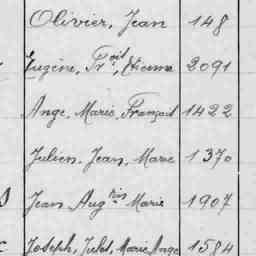 Olivier, Jean 148
Eugène, Fr.çois, Etienne 2091
Ange, Marie, François 1422
Julien, Jean, Marie 1370
Jean Aug.tin Marie 1907
Joseph, Jules, Marie Ange 1584